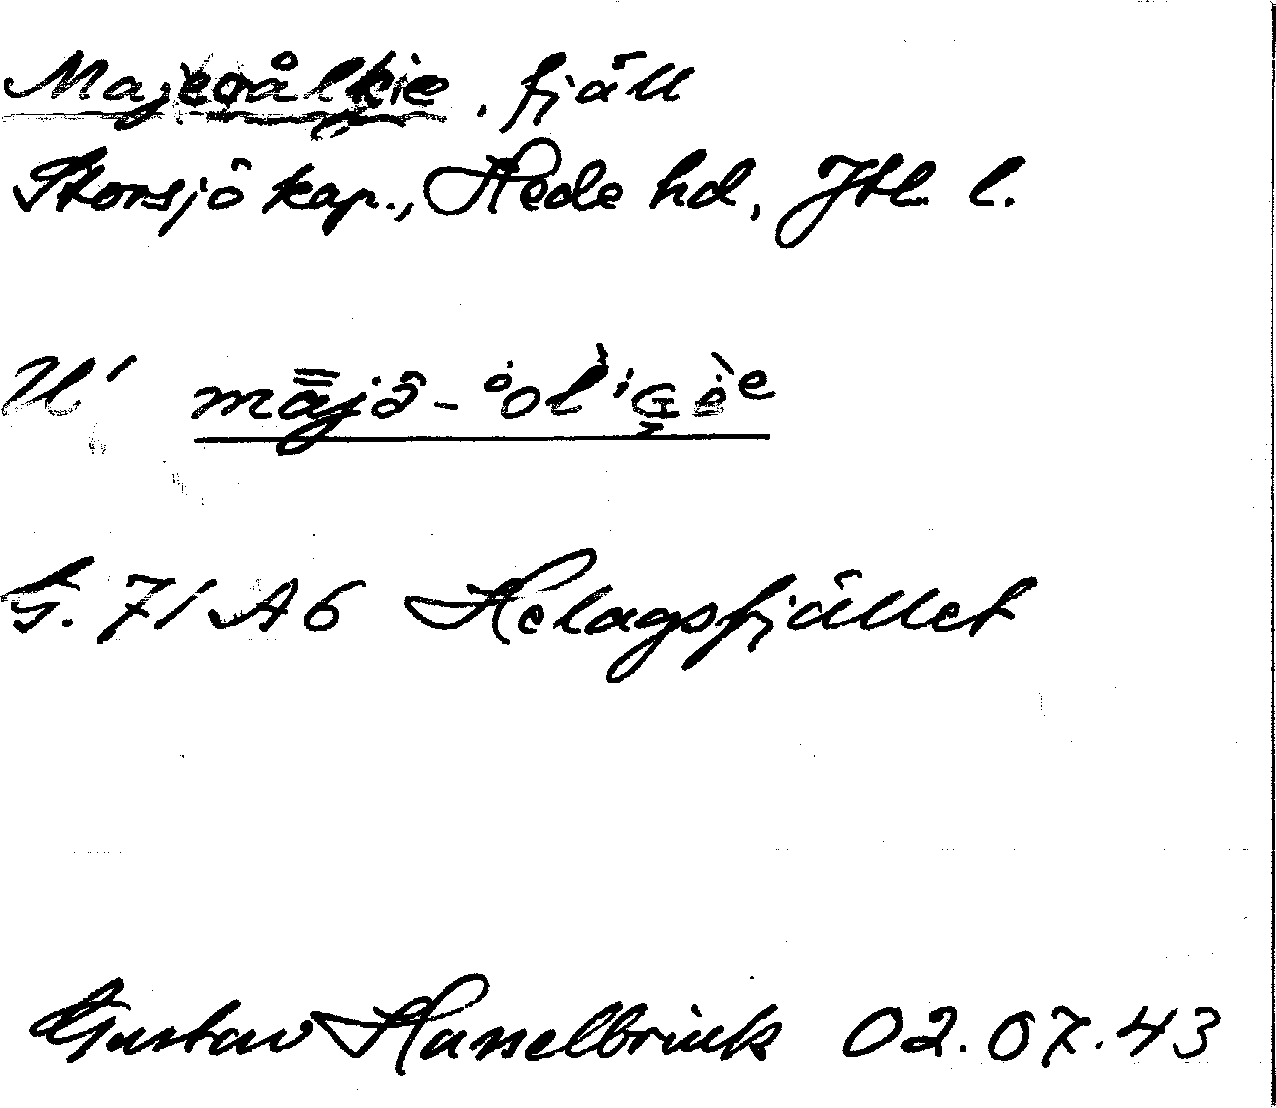 Majeoålkie, fjäll
Storsjö kap., Hede hd, Jtl. l.
U'
G. 71 A6 Helagsfjället
Gustav Hasselbrink 02.07.43